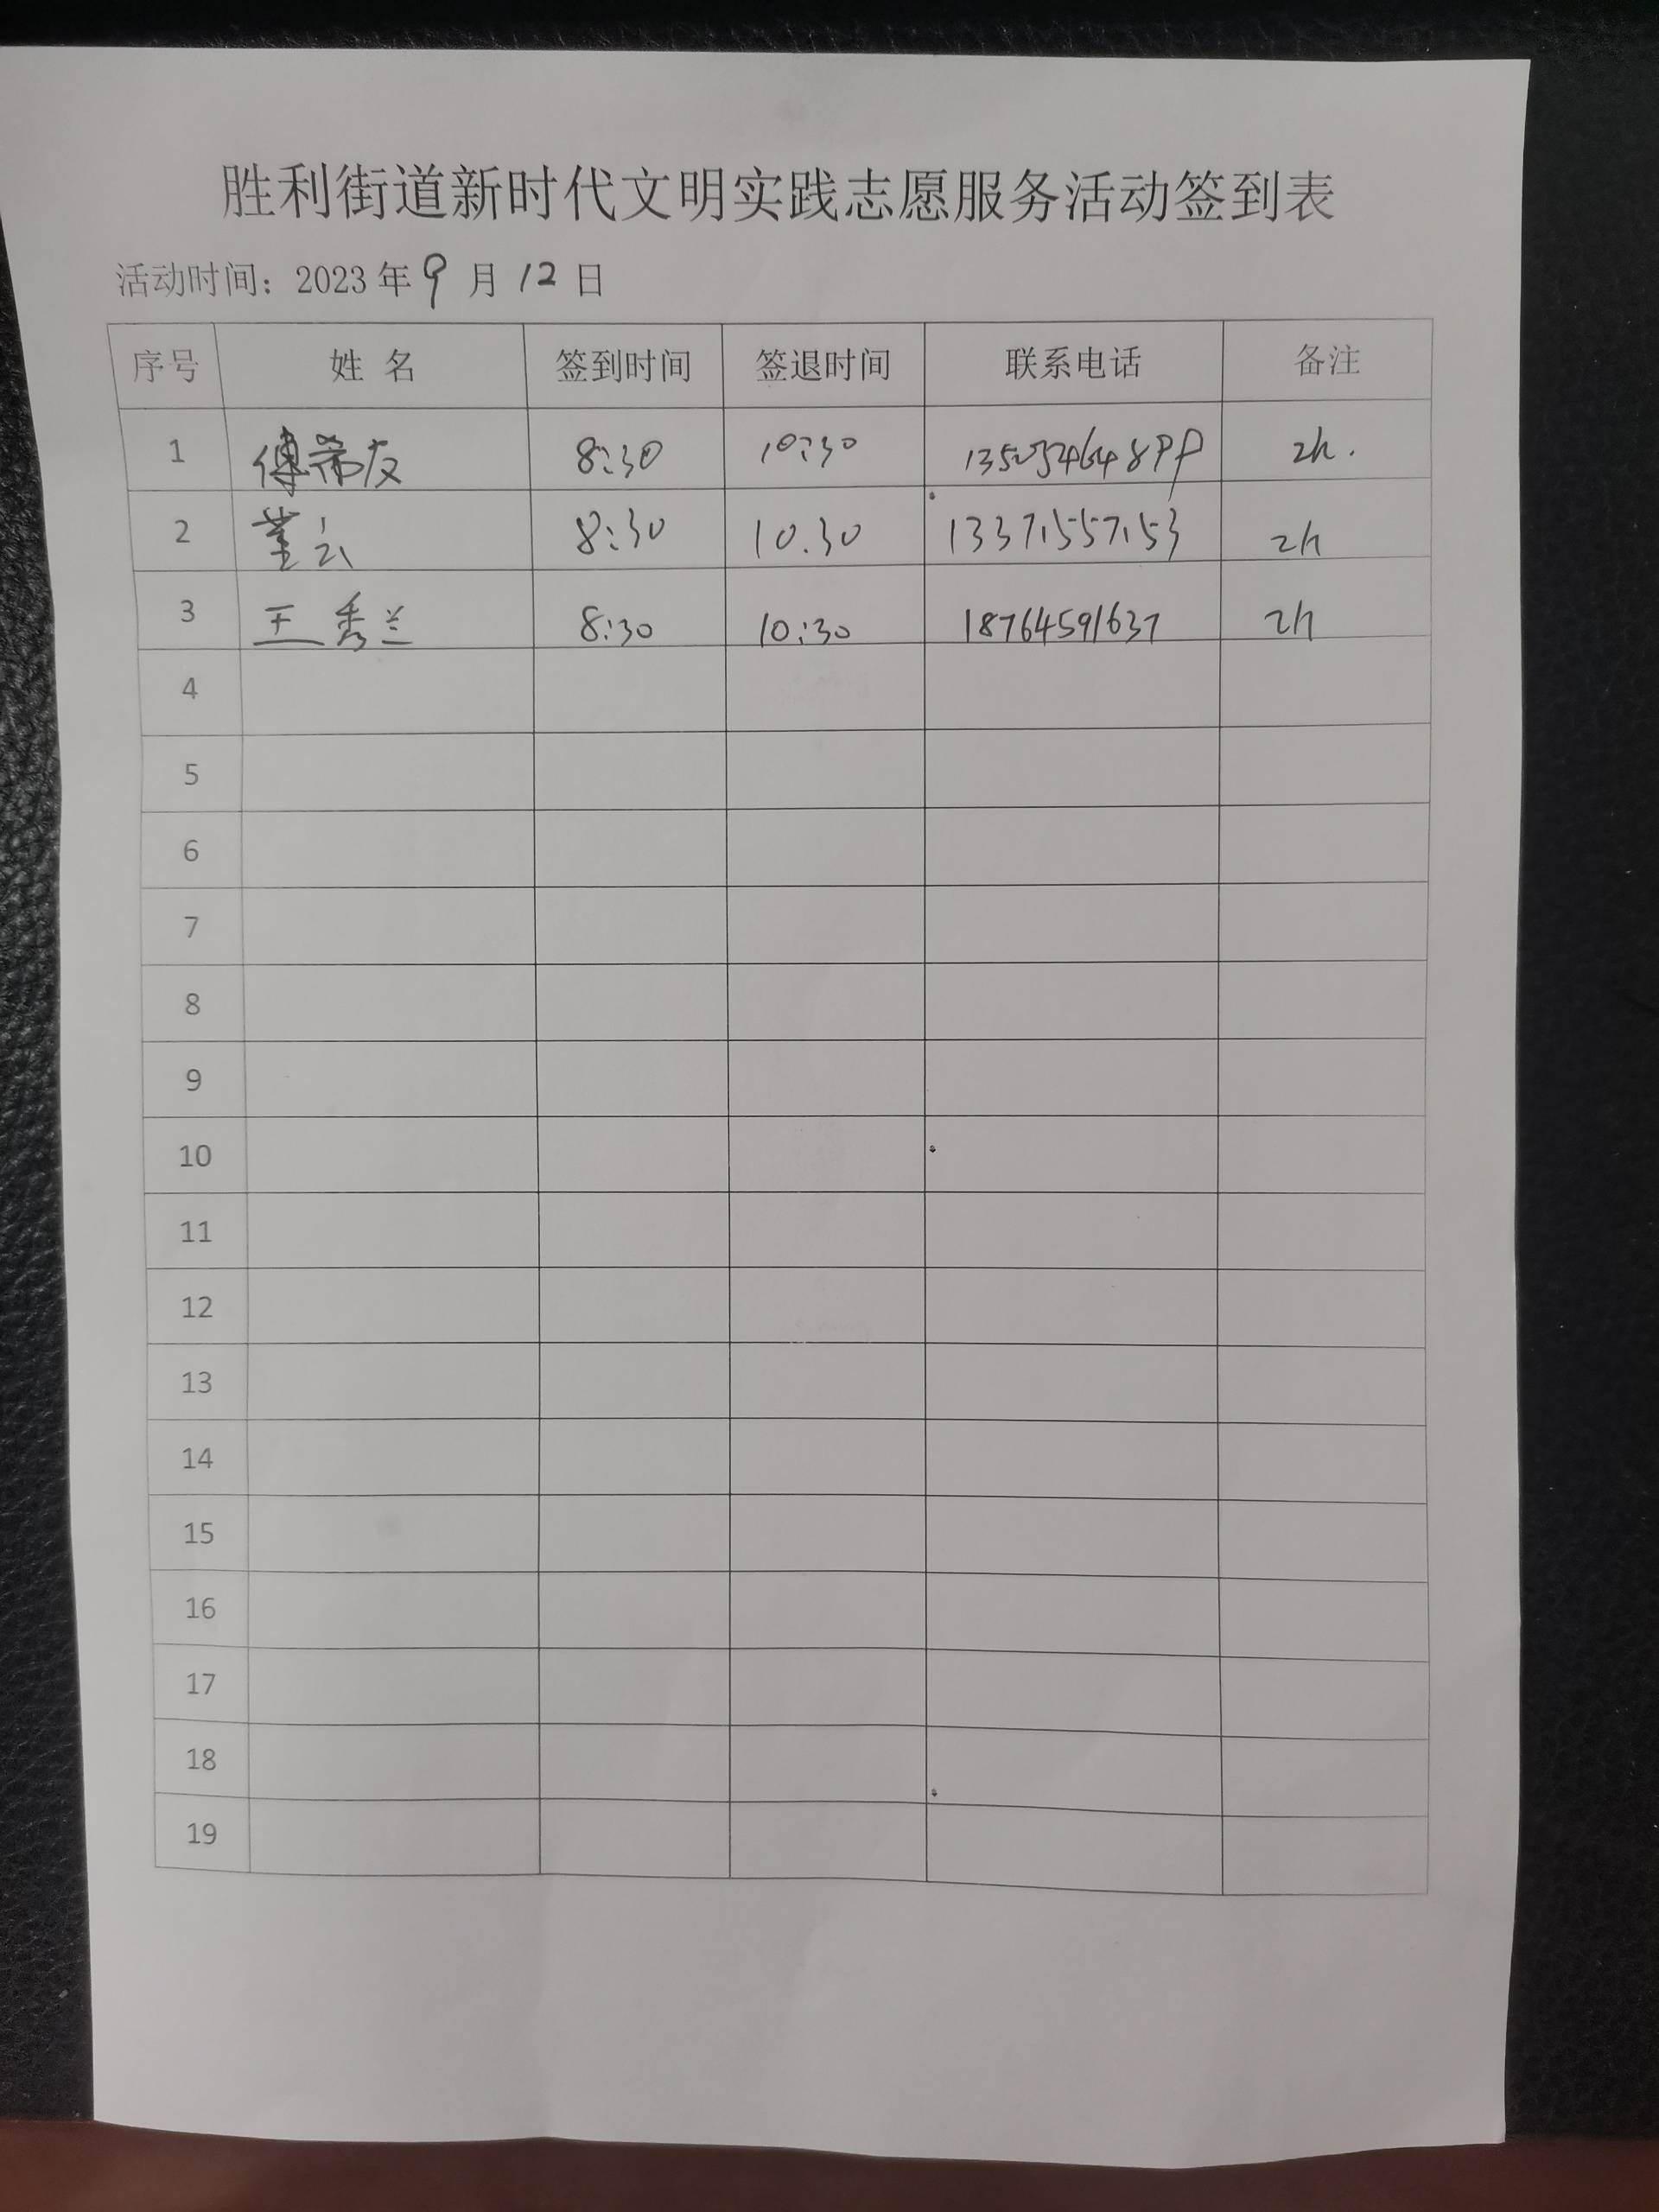 胜利街道新时代文明实践志愿服务活动签到表
活动时间：2023年9月12日
序号 姓 名 签到时间 签退时间 联系电话 备注
1 傅希友 8:30 10:30 2h.
2 董云 8:30 10.30 13371557153 2h
3 王秀兰 8:30 10:30 18764591637 2h
4
5
6
7
8
9
10
11
12
13
14
15
16
17
18
19